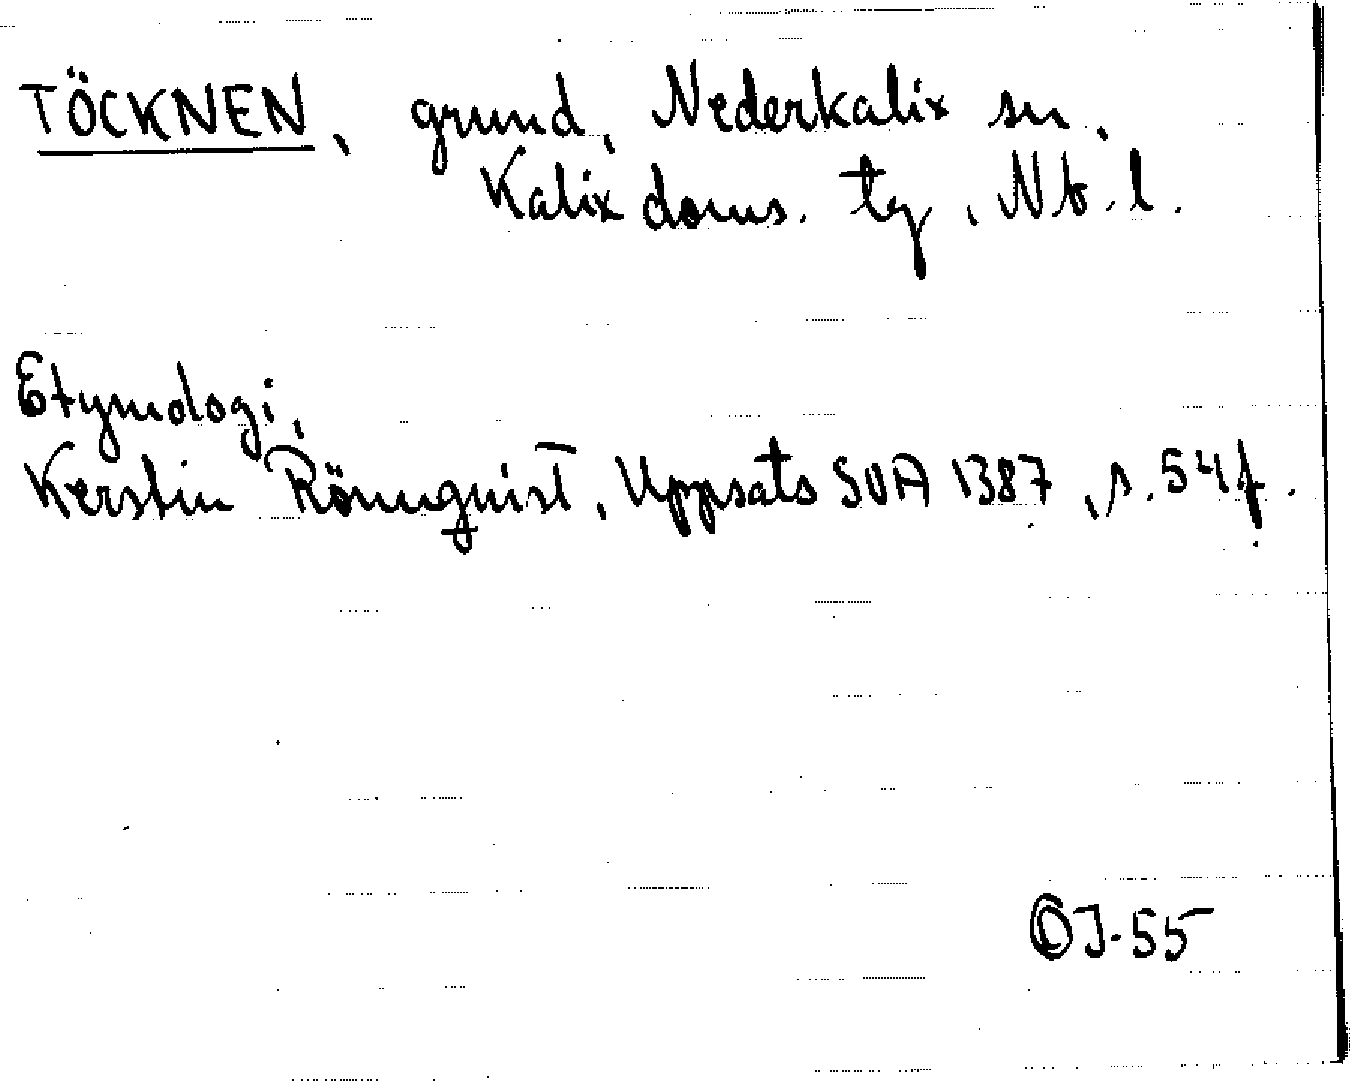 TÖCKNEN, grund, Nederkalix sn,
Kalix doms. tg, Nb. l.
Etymologi,
Kerstin Rönnquist, Uppsats SOÄ 1387, s. 54 f.
OJ-55